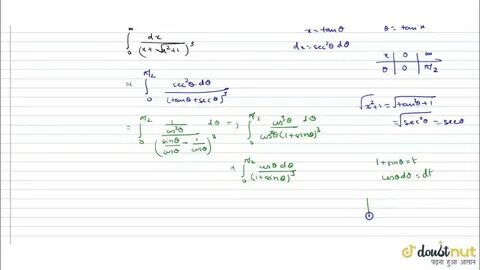 ∫₀^∞ dx / (x + √x²+1)³
x = tanθ    θ = tan⁻¹x
dx = sec²θ dθ
x | 0 | ∞
θ | 0 | π/2
= ∫₀^{π/2} sec²θ dθ / (tanθ + secθ)³
√x²+1 = √tan²θ+1
= √sec²θ = secθ
= ∫₀^{π/2} (1/cos²θ) / (sinθ/cosθ - 1/cosθ)³ dθ = ∫₀^{π/2} cos³θ dθ / cos²θ(1+sinθ)³
= ∫₀^{π/2} cosθ dθ / (1+sinθ)³
1+sinθ = t
cosθ dθ = dt
doubtnut
पढ़ना हुआ आसान